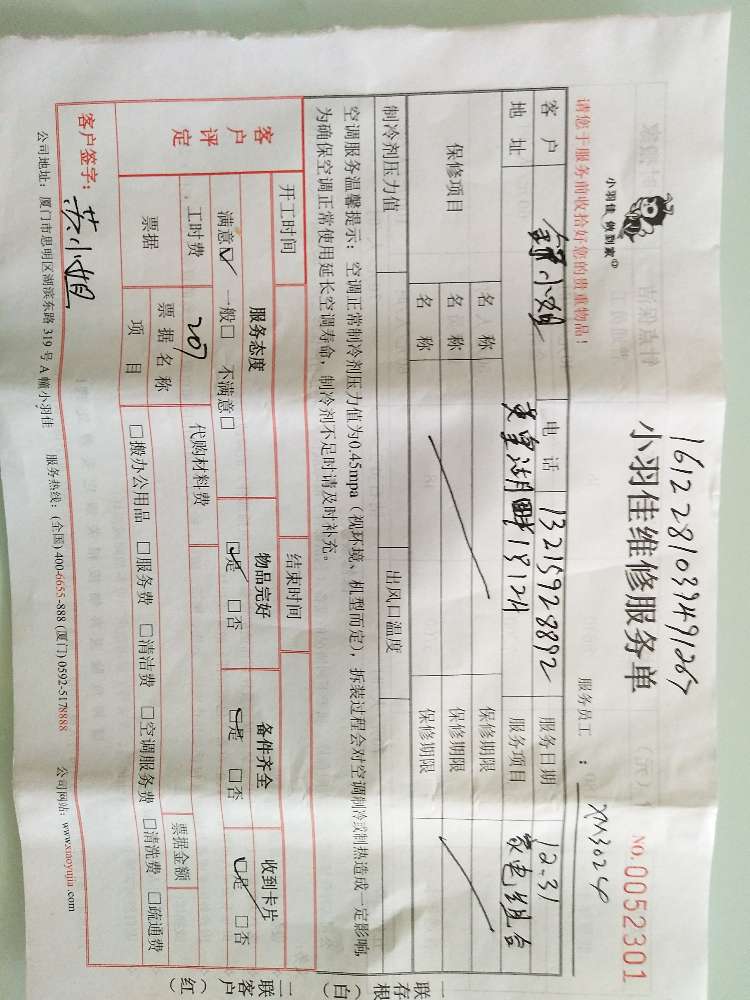 1612281039491267
小羽佳 做到家
小羽佳维修服务单
NO.0052301
请您于服务前收拾好您的贵重物品!
服务员工 : XM3024
客户 小姐 电话 13215928892 服务日期 12.31
地址 湖畔1812H 服务项目 家电组合
保修项目 名称 保修期限
名称 保修期限
名称 保修期限
制冷剂压力值 出风口温度
空调服务温馨提示:空调正常制冷剂压力值为0.45mpa(视环境、机型而定),拆装过程会对空调制冷或制热造成一定影响,
为确保空调正常使用延长空调寿命,制冷剂不足时请及时补充。
开工时间 结束时间
客户评定 服务态度 物品完好 备件齐全 收到卡片
满意☑ 一般□ 不满意□ ☑是 □否 ☑是 □否 ☑是 □否
工时费 207 代购材料费
票据 票据名称 票据金额
项目 □搬办公用品 □服务费 □清洁费 □空调服务费 □清洗费 □疏通费
客户签字: 苏小姐
公司地址:厦门市思明区湖滨东路 319 号 A 幢小羽佳 服务热线:(全国)400-6655-888 (厦门) 0592-5178888 公司网站:www.xiaoyujia.com
一联存根(白)
二联客户(红)